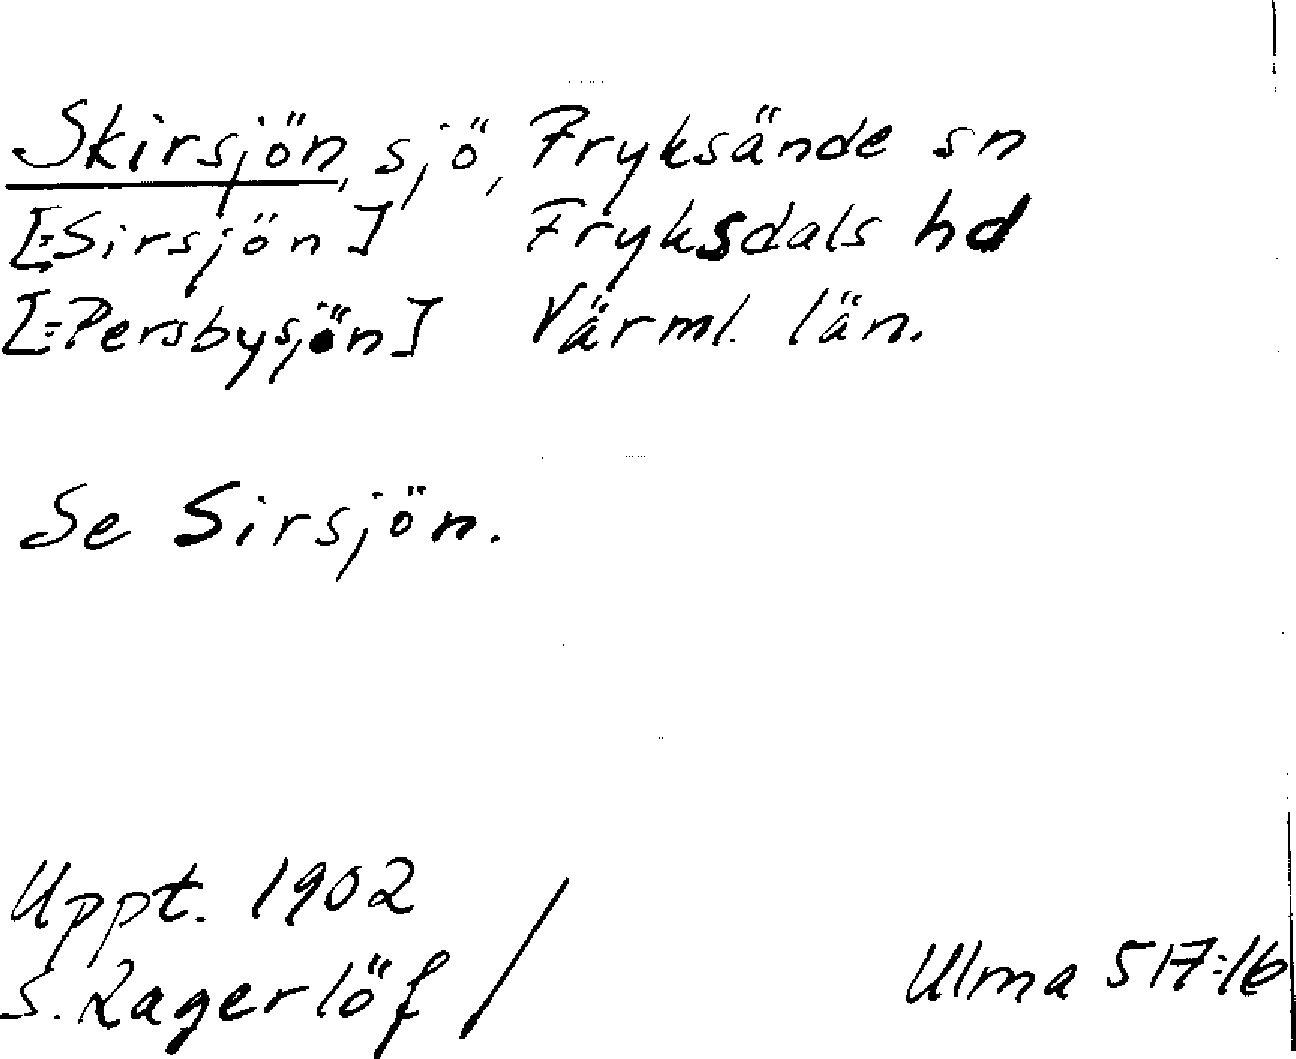 Skirsjön, sjö, Fryksände sn
[=Sirsjön] Fryksdals hd
[=Persbysjön] Värml. län.
Se Sirsjön.
Uppt. 1902
S. Lagerlöf /
Ulma 517:16